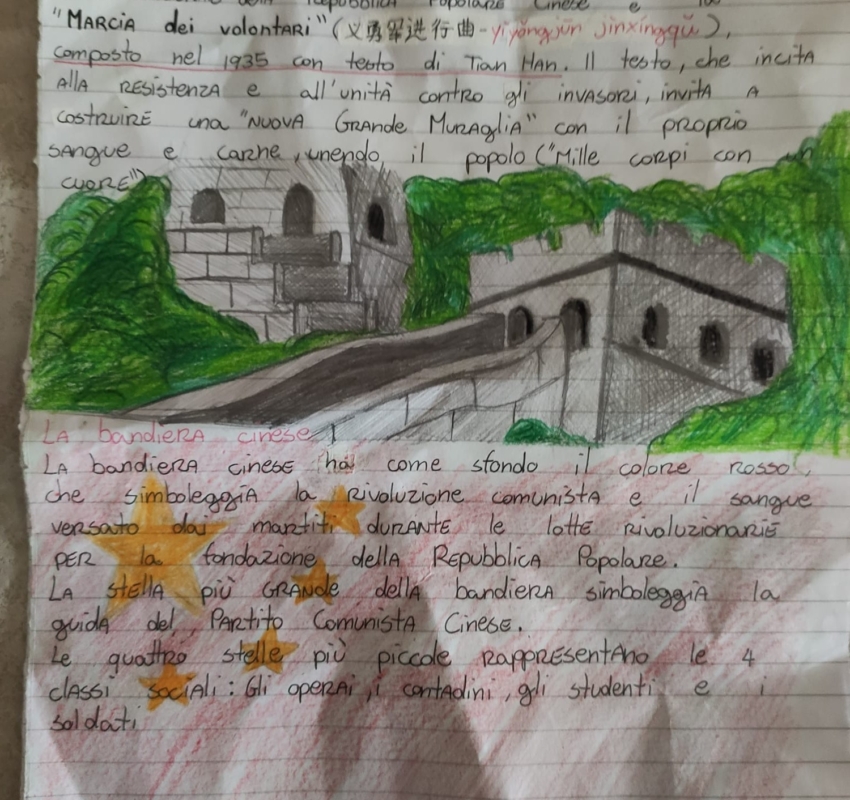 Repubblica Popolare Cinese e la
"Marcia dei volontari" (义勇军进行曲-yìyǒngjūn jìnxíngqǔ),
composto nel 1935 con testo di Tian Han. Il testo, che incita
alla resistenza e all'unità contro gli invasori, invita a
costruire una "Nuova Grande Muraglia" con il proprio
sangue e carne, unendo il popolo ("Mille corpi con un
cuore")
La bandiera cinese
La bandiera cinese ha come sfondo il colore rosso,
che simboleggia la Rivoluzione comunista e il sangue
versato dai martiti durante le lotte rivoluzionarie
per la fondazione della Repubblica Popolare.
La stella più grande della bandiera simboleggia la
guida del Partito Comunista Cinese.
Le quattro stelle più piccole rappresentano le 4
classi sociali: Gli operai, i contadini, gli studenti e i
soldati